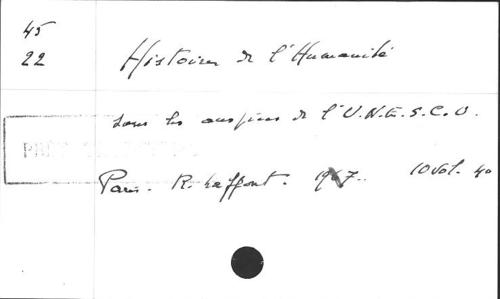 45
22
Histoire de l'Humanité
sous les auspices de l'U.N.E.S.C.O.
Paris. R. Laffont. 1967. 10 vol. 4o